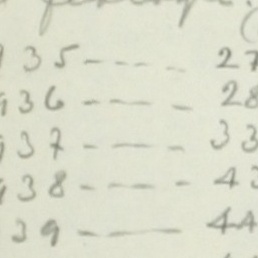 935---- 27
936---- 28
937---- 33
938---- 43
39---- 44